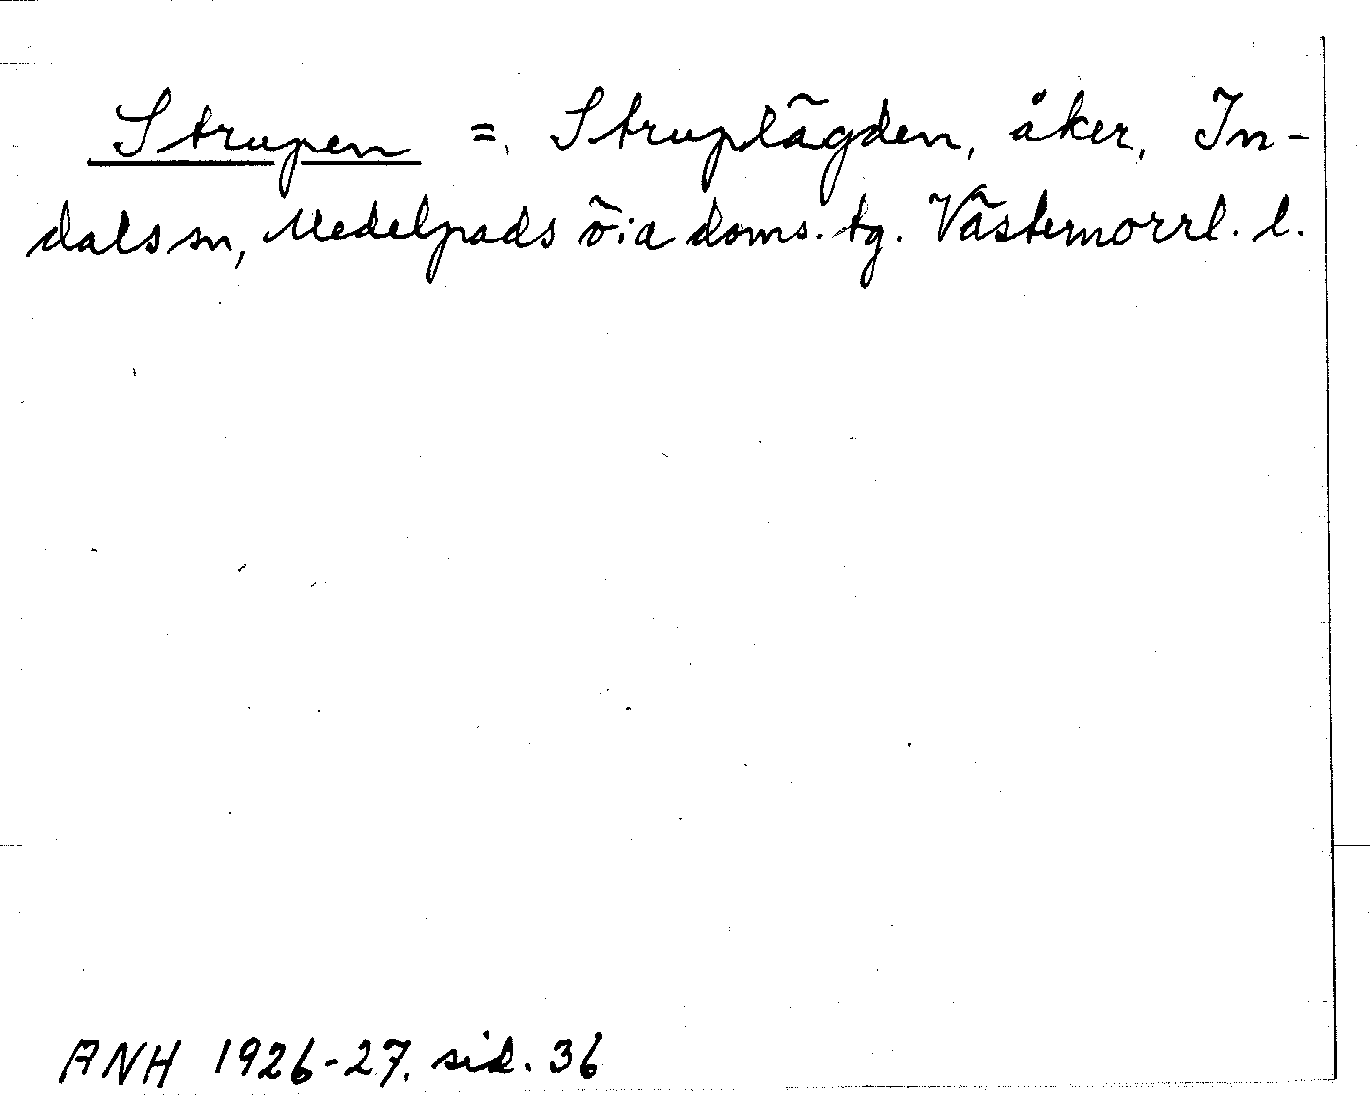 Strupen = Struplägden, åker, In-
dals sn, Medelpads ö:a doms. tg. Västernorrl. l.
ANH 1926-27. sid. 36